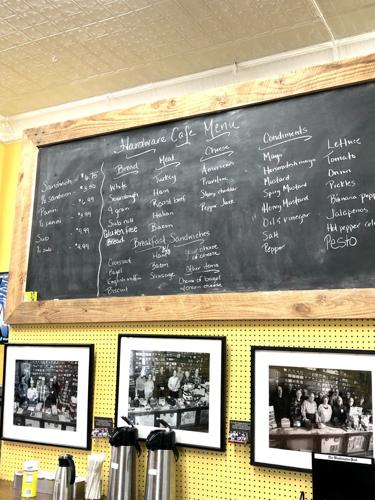 Hardware Cafe Menu
Sandwich $6.75
½ sandwich
Panini
½ panini
Sub
½ sub
Bread
White
Sourdough
9 grain
Sub roll
Gluten Free
Bread
Meat
Turkey
Ham
Roast beef
Italian
Bacon
Cheese
American
Provolone
Sharp cheddar
Pepper Jack
Condiments
Mayo
Horseradish mayo
Mustard
Spicy Mustard
Honey Mustard
Oil & vinegar
Salt
Pepper
Lettuce
Tomato
Onion
Pickles
Banana pepp
Jalapenos
Hot pepper reli
Pesto
Breakfast Sandwiches
Croissant
Bagel
English muffin
Biscuit
Ham
Bacon
Sausage
Your choice
of cheese
Other items
Choice of bagel
w/cream cheese